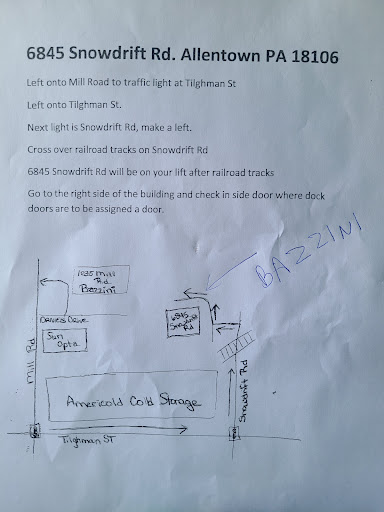 6845 Snowdrift Rd. Allentown PA 18106
Left onto Mill Road to traffic light at Tilghman St
Left onto Tilghman St.
Next light is Snowdrift Rd, make a left.
Cross over railroad tracks on Snowdrift Rd
6845 Snowdrift Rd will be on your lift after railroad tracks
Go to the right side of the building and check in side door where dock
doors are to be assigned a door.
BAZZINI
1035 Mill
Rd
Bazzini
6845
Snowdrift
Rd
Daniels Drive
Sun
Opta
Mill Rd
Snowdrift Rd
Americold Cold Storage
Tilghman ST